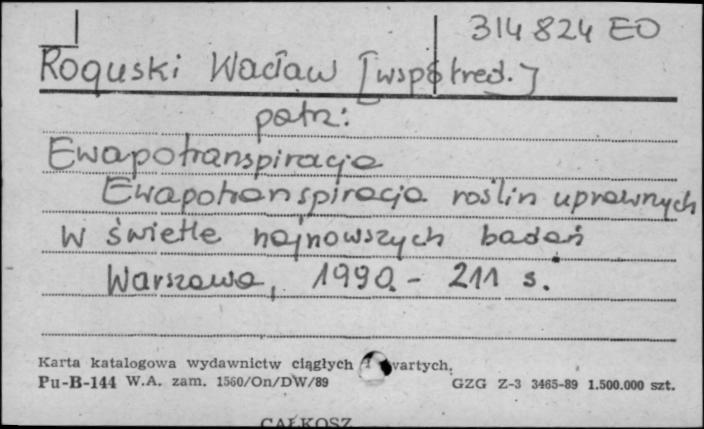 314824 EO
Roguski Wacław [współred.]
patrz:
Ewapotranspiracja
Ewapotranspiracja roślin uprawnych
w świetle najnowszych badań
Warszawa, 1990. - 211 s.
Karta katalogowa wydawnictw ciągłych i wartych.
Pu-B-144 W.A. zam. 1560/On/DW/89 GZG Z-3 3465-89 1.500.000 szt.
CAŁKOSZ